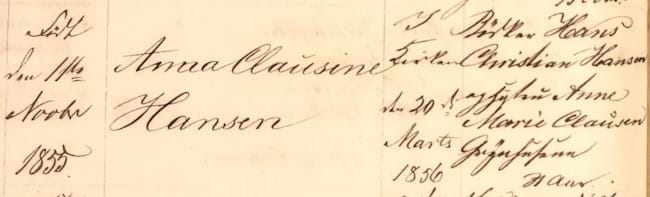 Født
den 11te
Novbr
1855.
Anna Clausine
Hansen
I
Kirken
den 20 de
Marts
1856
Bødker Hans
Christian Hansen
og Hustru Anne
Marie Clausen
Grynhusene
Aar.